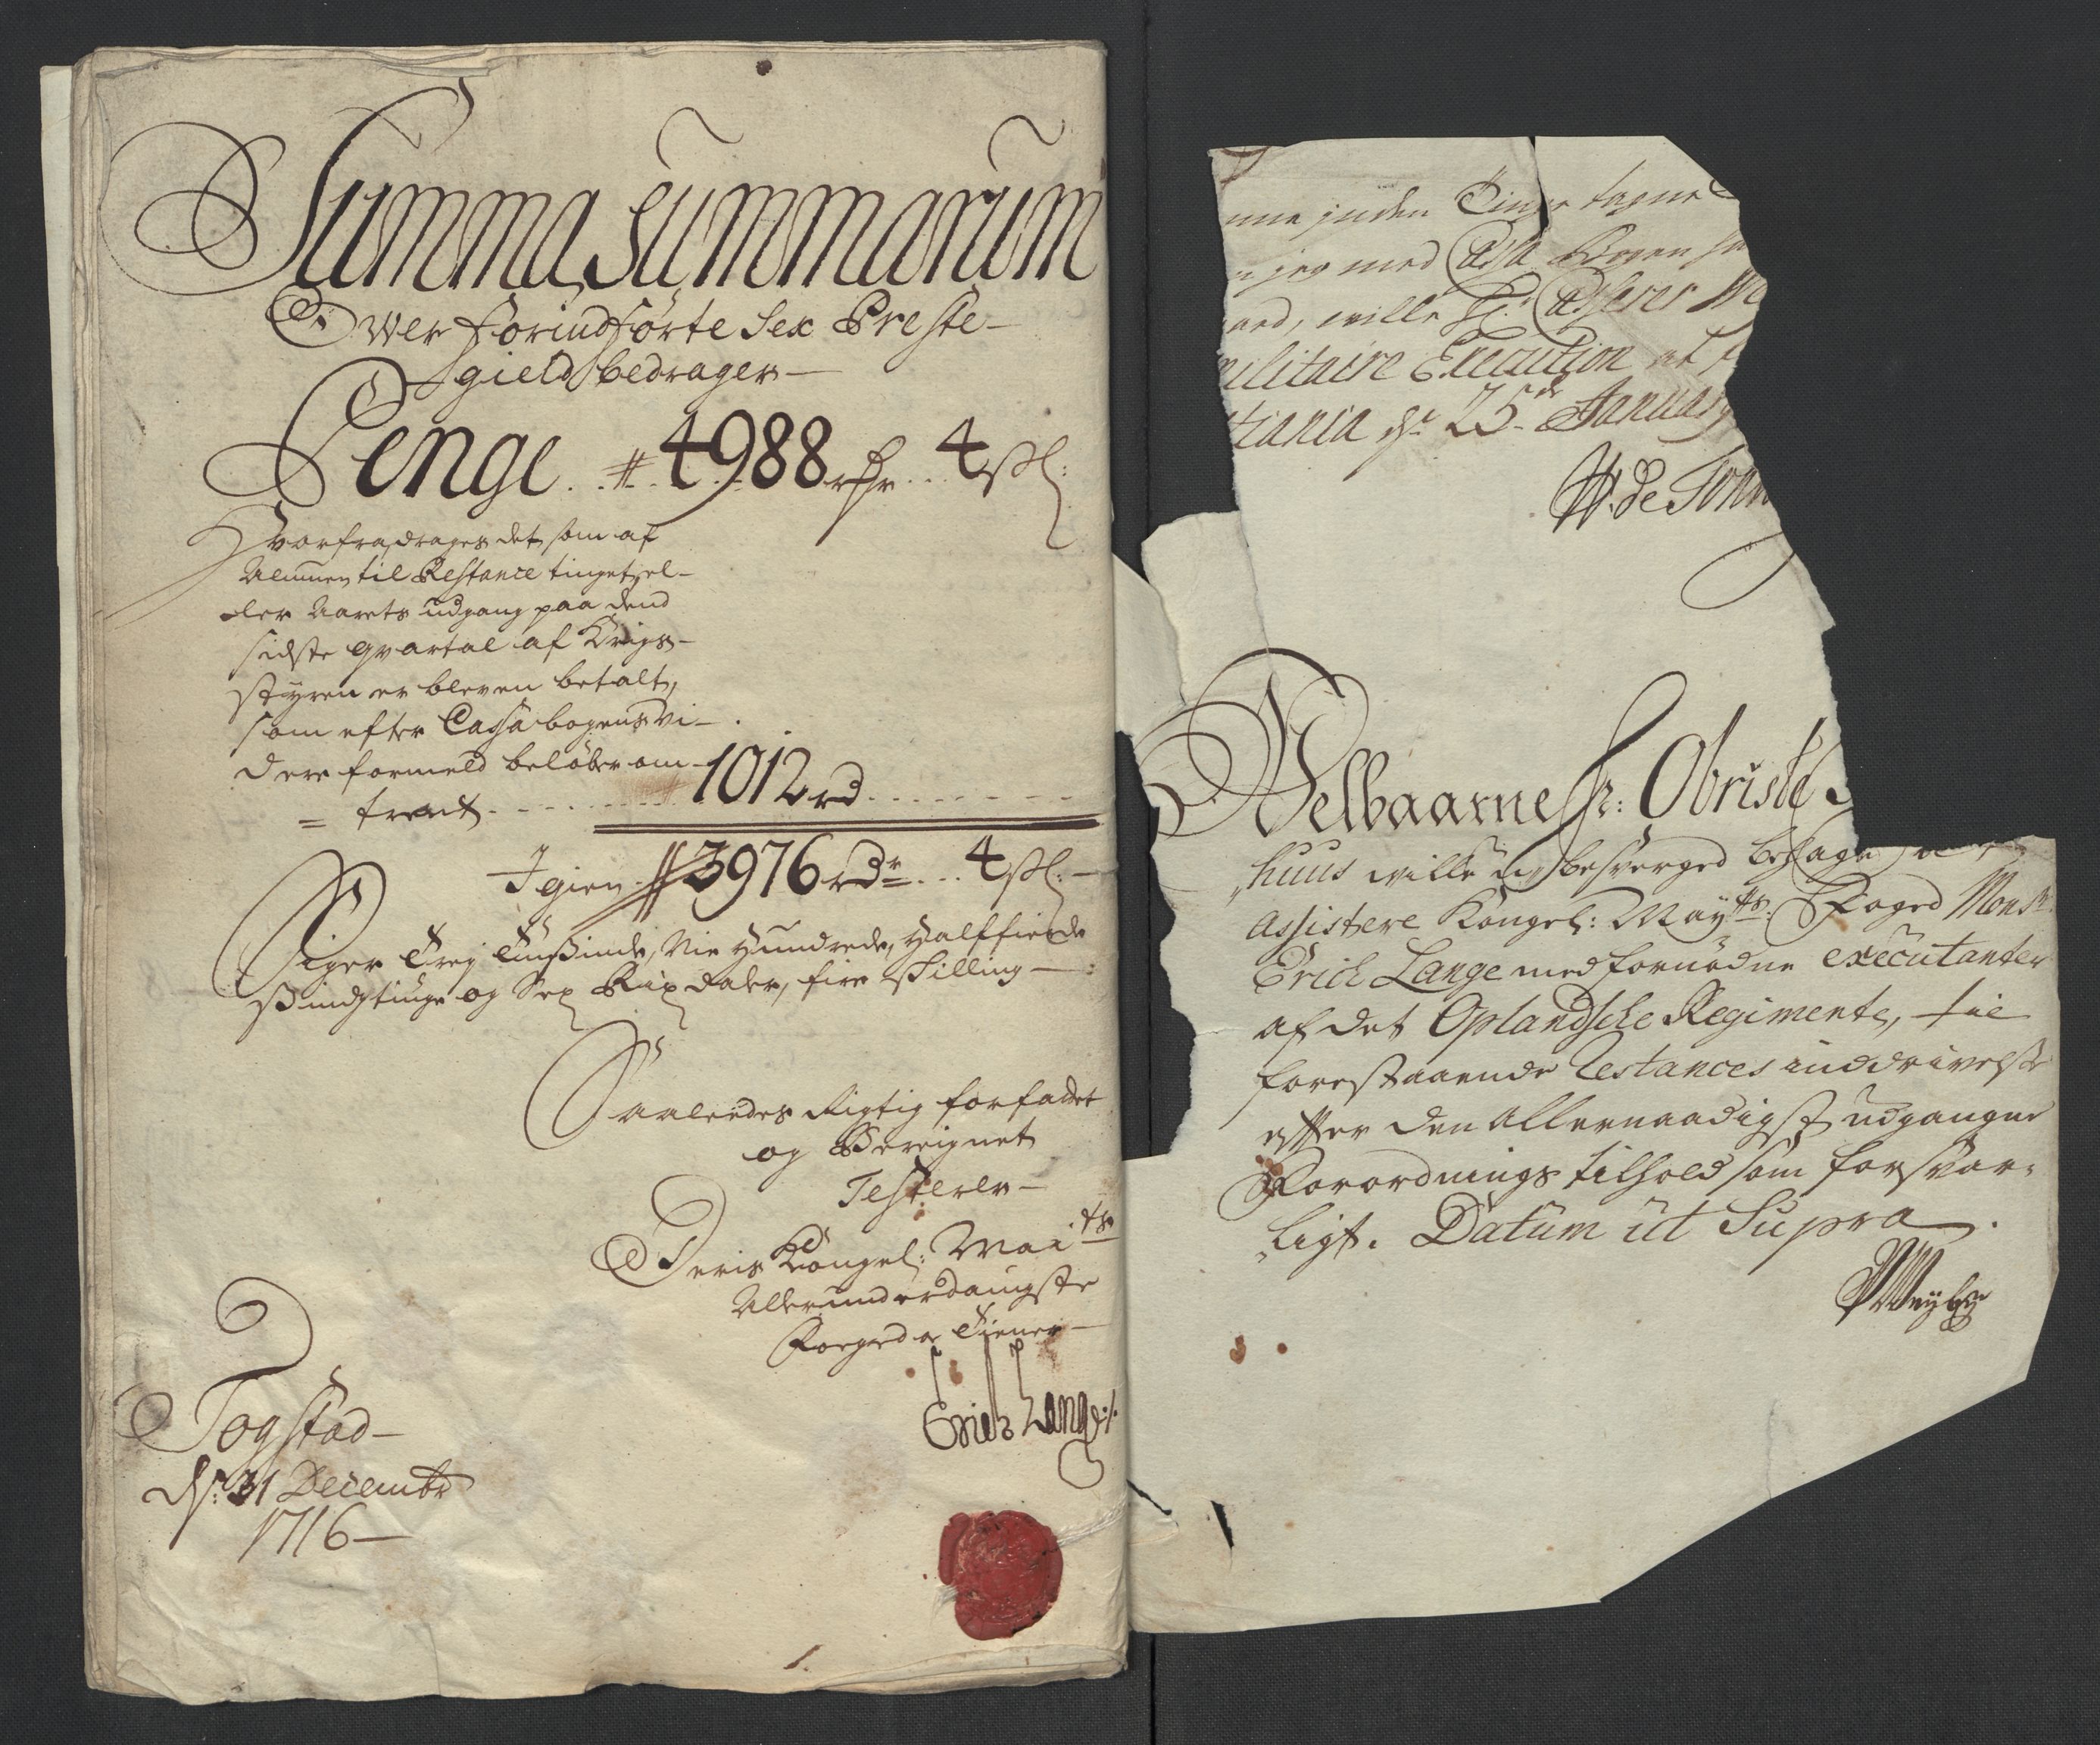 Summa Summarum
Over forindførte Sex Preste-
gield bedrager-
Penge . # 4988 rdr . . 4 sk:
Hvorfra drages det som af
Almuen til Restance tinget
Aarets udgang paa dend
sidste qvartal af Krigs-
styren er bleven betalt,
som efter Cassa bogens vi-
dere formeld beløber om-
= trent . . . 1012 rd . . .
Igien # 3976 rdr . . . 4 sk: -
Siger Trej Tusinde, Nie Hundrede, Halffierde
Sindstiuge og Sex Rix daler, fire skilling -
Saaledes Rigtig forfattet
og Bereignet
Testerer -
Deris Kongel: Mai.ts
Allerunderdanigste
Foeged og Tiener -
Erich Lange ./.
Togstad-
ds: 31 Decembr
1716-
inden Tinge tagne
jeg med Cassa Bogen
ville Hr. Casserer
militaire Execution at
tiania ds. 25de January
W. de Tonn
Velbaarne Hr: Obriste
huus ville u-besverged behage
assistere Kongel: Mayts. Foged Monsr.
Erich Lange med fornødne executanter
af det Oplandsche Regimente, til
forestaaende Restances inddrivelse
efter den Allernaadigst udgangne
Forordnings tilhold som forsvar-
ligt. Datum ut Supra .